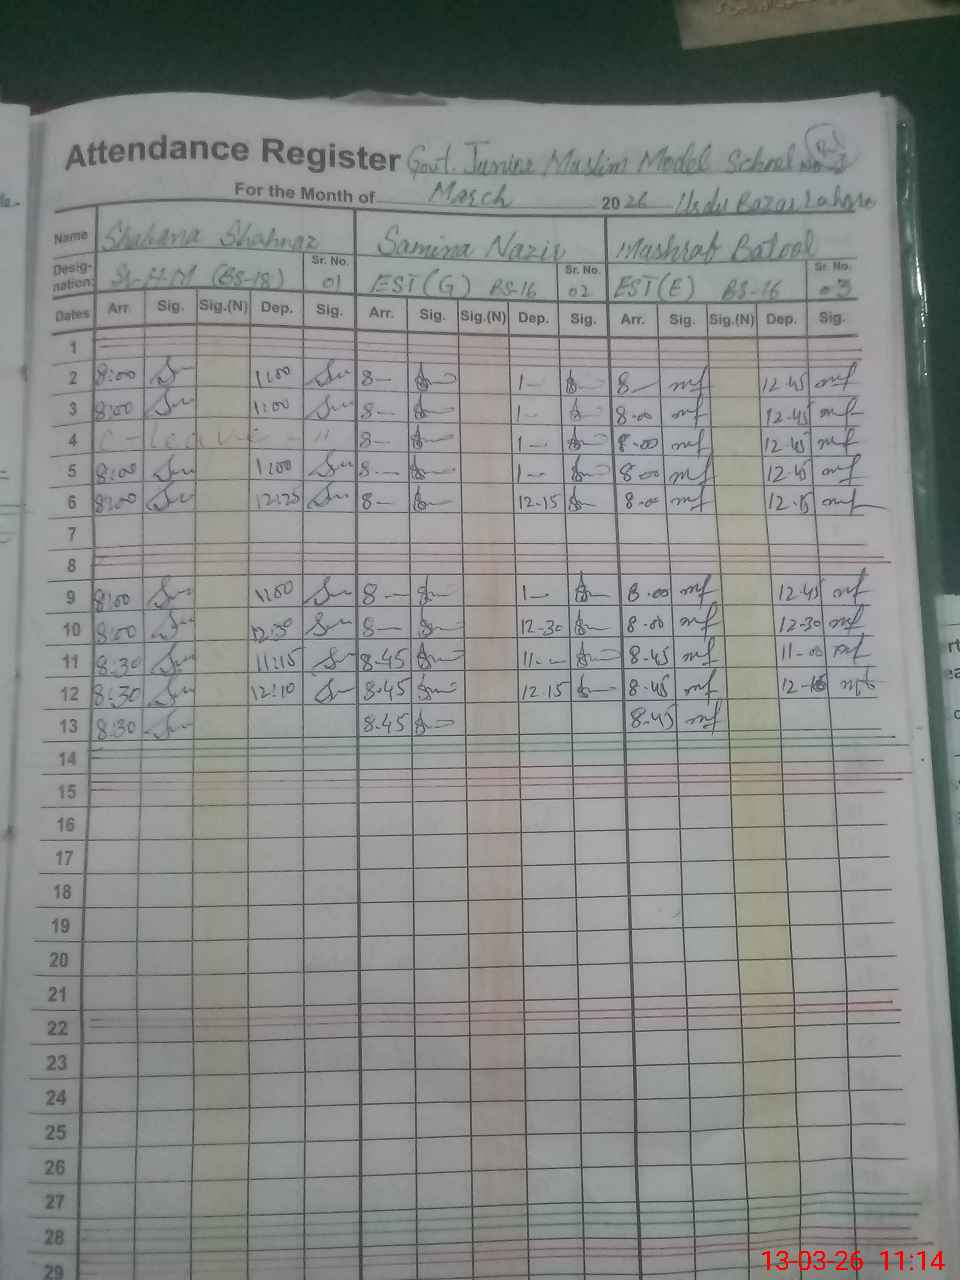 Attendance Register Govt. Junior Muslim Model School No. 2
For the Month of March 2026 Urdu Bazar Lahore
Name Shahana Shahnaz Samina Nazir Mashraf Batool
Designation: Sr. H.M (BS-18) Sr. No. 01 EST (G) BS-16 Sr. No. 02 EST (E) BS-16 Sr. No. 03
Dates Arr. Sig. Sig.(N) Dep. Sig. Arr. Sig. Sig.(N) Dep. Sig. Arr. Sig. Sig.(N) Dep. Sig.
1
2 8:00 1:00 8- 1- 8- mf 12-45 mf
3 8:00 1:00 8- 1- 8-00 mf 12-45 mf
4 C-Leave - " 8- 1- 8-00 mf 12-45 mf
5 8:00 1:00 8- 1- 8-00 mf 12-45 mf
6 8:00 12:25 8- 12-15 8-00 mf 12-15 mf
7
8
9 8:00 1:00 8- 1- 8-00 mf 12-45 mf
10 8:00 12:30 8- 12-30 8-00 mf 12-30 mf
11 8:30 11:15 8-45 11-- 8-45 mf 11-00 mf
12 8:30 12:10 8-45 12-15 8-45 mf 12- mf
13 8:30 8-45 8-45 mf
14
15
16
17
18
19
20
21
22
23
24
25
26
27
28
29
13-03-26 11:14